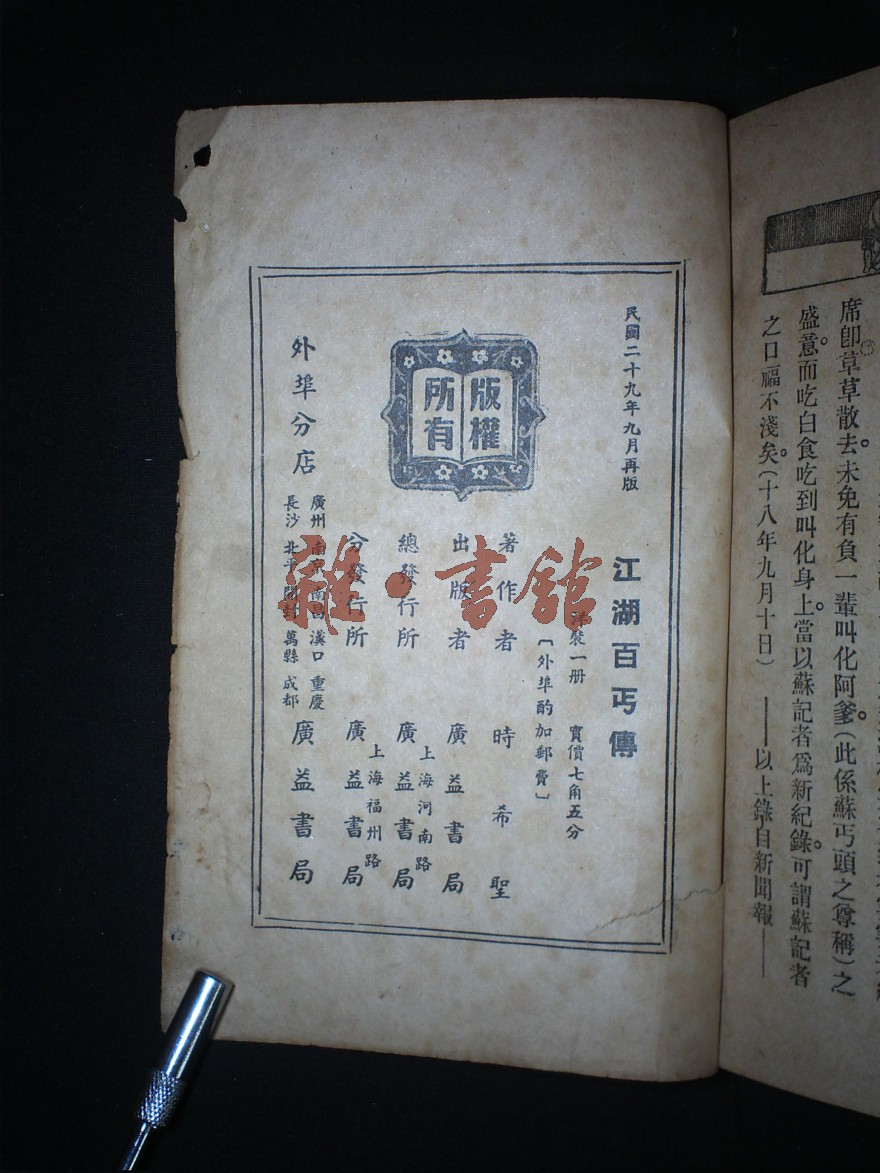 席卽草草散去。未免有負一輩叫化阿爹。(此係蘇丐頭之尊稱)之
盛意。而吃白食吃到叫化身上。當以蘇記者爲新紀錄。可謂蘇記者
之口福不淺矣。(十八年九月十日)
——以上錄自新聞報——
民國二十九年九月再版
江湖百丐傳
洋裝一册 實價七角五分
〔外埠酌加郵費〕
版權
所有
著作者 時希聖
出版者 廣益書局
總發行所 上海河南路
廣益書局
分發行所 上海福州路
廣益書局
外埠分店
廣州 南京 南昌 漢口 重慶
長沙 北平 開封 萬縣 成都
廣益書局
雜·書館